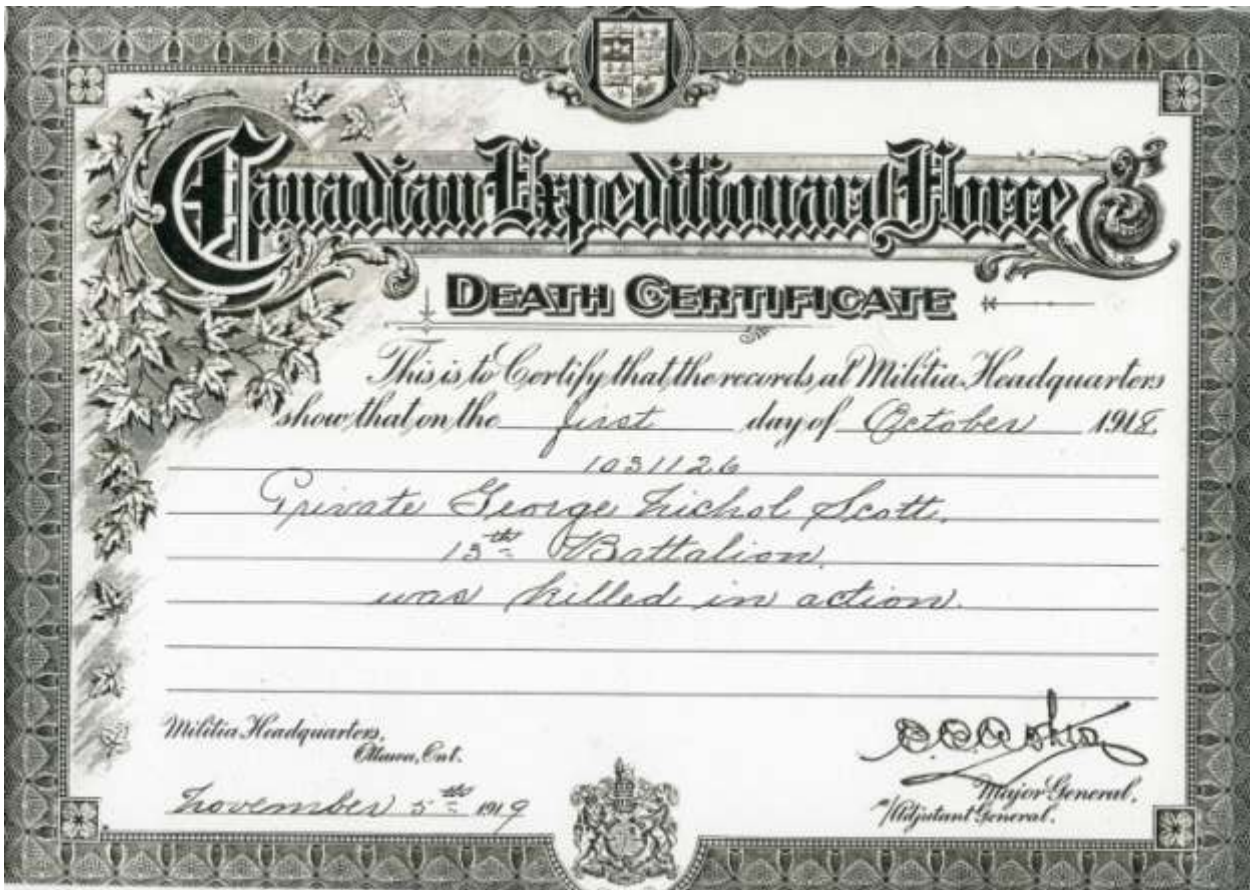 Canadian Expeditionary Force
DEATH CERTIFICATE
This is to Certify that the records at Militia Headquarters
show that on the first day of October 1918,
1031126
Private George Nichol Scott,
13th Battalion,
was killed in action.
Militia Headquarters,
Ottawa, Ont.
November 5th 1919
Major-General,
Adjutant General.